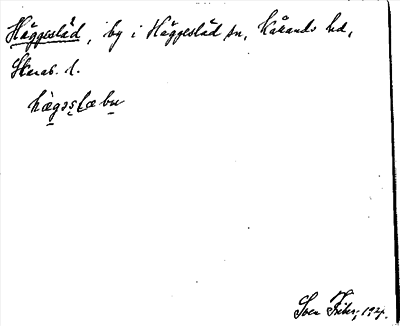 Häggesläd, by i Häggesläd sn, Kåkands hd,
Skarab. l.
hægəslæbu
Sven Fiber, 192.